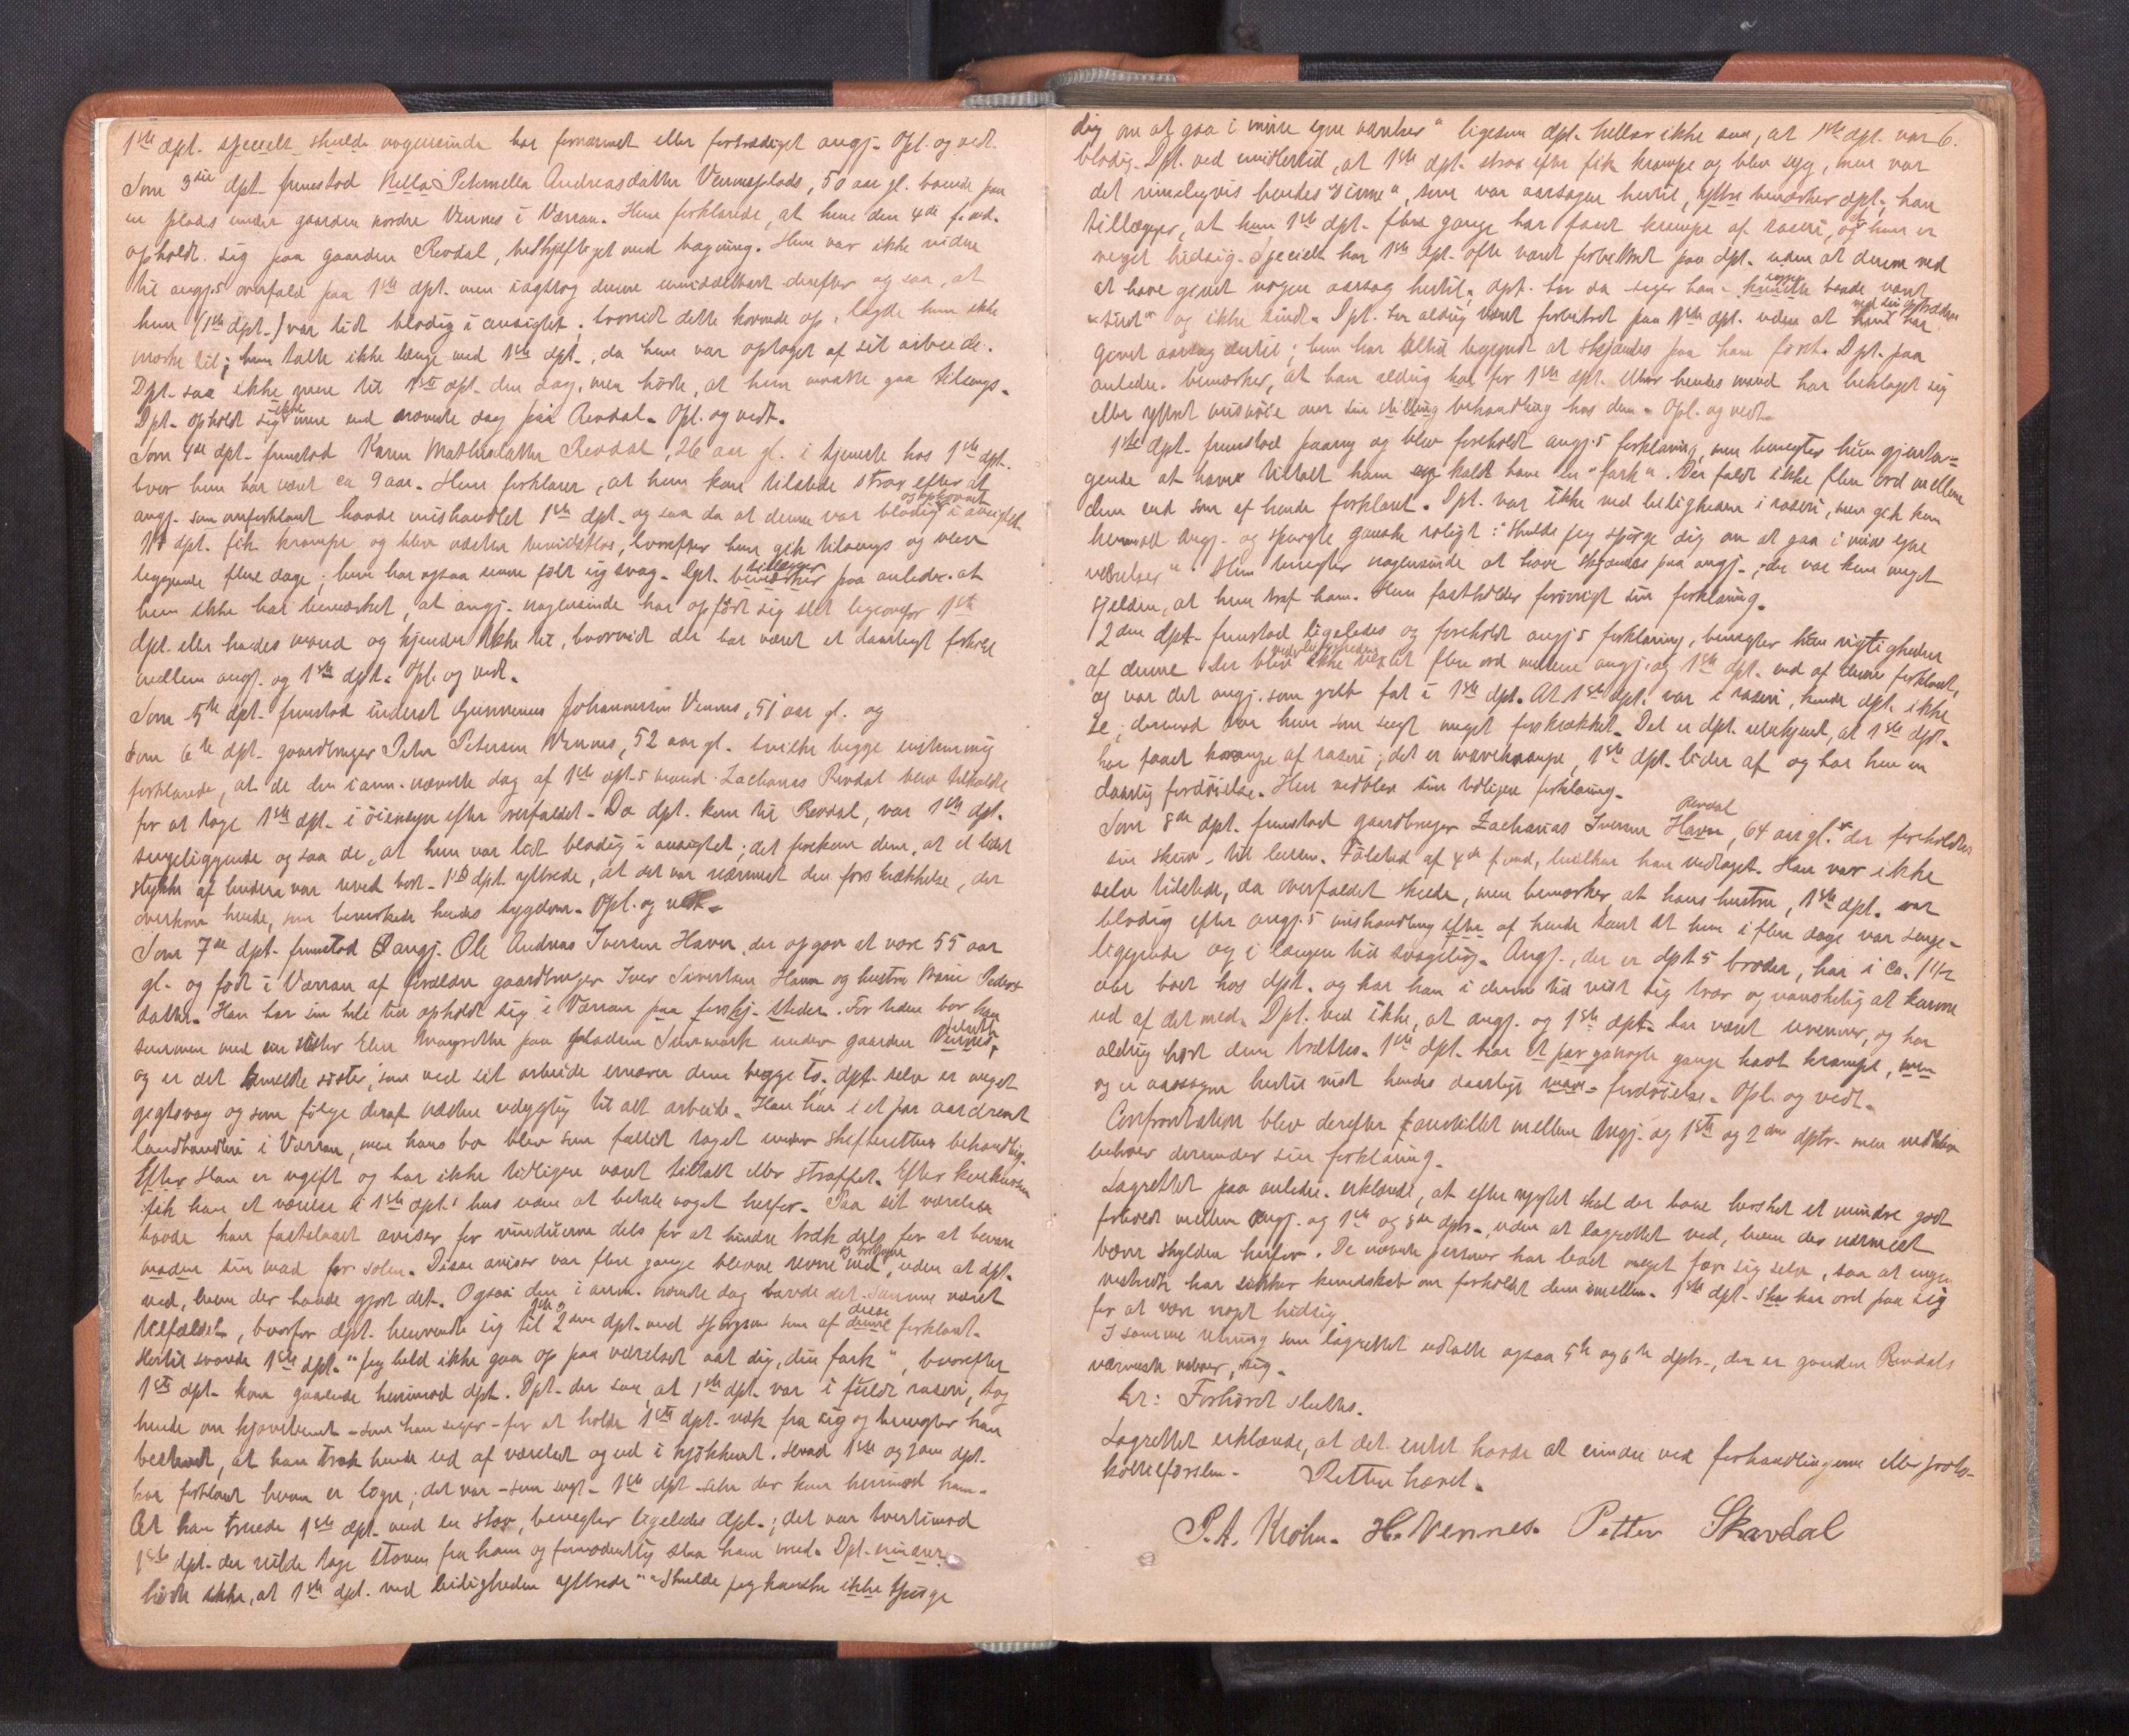 1ste dpt. specielt skulde nogensinde har fornærmet eller fortrædiget angj. Opl. og vedt.
Som 3die dpt. fremstod Nella Peternella Andreasdatter Vennesplads, 50 aar gl. boende paa
en plads under gaarden nordre Vennes i Værran. Hun forklarede, at hun den 4de f. md.
opholdt sig paa gaarden Revdal, beskjæftiget med bagning. Hun var ikke vidne
til angj.s overfald paa 1ste dpt. men iagttog denne umiddelbart derefter og saa, at
hun (1ste dpt.) var lidt blodig i ansigtet; hvorvidt dette hovnede op, lagde hun ikke
mærke til; hun talte ikke længe med 1ste dpt., da hun var optaget af sit arbeide.
Dpt. saa ikke mere til 1ste dpt. den dag, men hørte, at hun maatte gaa tilsengs.
Dpt. opholdt sig ikke mere end nævnte dag paa Revdal. Opl. og vedt.
Som 4de dpt. fremstod Karen Mathisdatter Revdal, 26 aar gl. i tjeneste hos 1ste dpt.
hvor hun har været ca 9 aar. Hun forklarer, at hun kom tilstede strax efter at
angj. som omforklaret havde mishandlet 1ste dpt. og saa da at denne var blodig og ophovnet i ansigtet
1ste dpt. fik krampe og blev næsten bevidstløs, hvorefter hun gik tilsengs og blev
liggende flere dage; hun har ogsaa senere følt sig svag. Dpt. tillægger paa anledn. at
hun ikke har bemærket, at angj. nogensinde har opført sig slet ligeoverfor 1ste
dpt. eller hendes mand og kjender ikke til, hvorvidt der har været et daarligt forhold
mellem angj. og 1ste dpt. Opl. og vedt.
Som 5te dpt. fremstod inderst Gunnerius Johannessen Vennes, 51 aar gl. og
som 6te dpt. gaardbruger Peter Petersen Vennes, 52 aar gl. hvilke begge enstemmig
forklarede, at de den i anm. nævnte dag af 1ste dpt.s mand Zacharias Revdal blev tilkaldte
for at tage 1ste dpt. i øiensyn efter overfaldet. Da dpt. kom til Revdal, var 1ste dpt.
sengeliggende og saa de, at hun var lidt blodig i ansigtet; det forekom dem, at et lidet
stykke af huden var revet bort. 1ste dpt. yttrede, at det var nærmest den forskrækkelse, der
overkom hende, som bevirkede hendes sygdom. Opl. og vedt.
Som 7de dpt. fremstod angj. Ole Andreas Iversen Havn, der opgav at være 55 aar
gl. og født i Værran af forældre gaardbruger Iver Sivertsen Havn og hustru Marie Peders-
datter. Han har sin hele tid opholdt sig i Værran paa forskj. steder. For tiden bor han
sammen med sin søster Elen Margrethe paa pladsen Svenmark under gaarden Vennes,
og er det hans søster, som ved sit arbeide ernærer dem begge to; dpt. selv er meget
gigtsvag og som følge deraf næsten udygtig til alt arbeide. Han har i et par aar drevet
landhandleri i Værran, men hans bo blev som fallit taget under skifterettens behandling.
Efter Han er ugift og har ikke tidligere været tiltalt eller straffet. Efter konkursen
fik han et værelse i 1ste dpt.s hus uden at betale noget herfor. Paa sit værelse
havde han fastslaaet aviser for vinduerne dels for at hindre træk dels for at bevare
maden sin mad for solen. Disse aviser var flere gange blevne revne ned, uden at dpt.
ved, hvem der havde gjort det. Ogsaa den i anm. nævnte dag havde det samme været
tilfældet, hvorfor dpt. henvendte sig til 1ste og 2den dpt. med spørgsm. som af disse forklaret.
Hertil svarede 1ste dpt. "Jeg held ikke gaa op paa værelset aat dig, din fark", hvorefter
1ste dpt. kom gaaende henimod dpt. Dpt. der saa, at 1ste dpt. var i fuldt raseri, tog
hende om kjovebenet – som han siger – for at holde 1ste dpt. væk fra sig og benegter han
bestemt, at han trak hende ud af værelset og ud i kjøkkenet. Hvad 1ste og 2den dpt.
har forklaret herom er løgn; det var – som sagt – 1ste dpt. selv der kom henimod ham.
At han truede 1ste dpt. med en stav, benegter ligeledes dpt.; det var tvertimod
1ste dpt. der vilde tage staven fra ham og formodentlig slaa ham med. Dpt.
hørte ikke, at 1ste dpt. ved leiligheden yttrede "Skulde jeg kanske ikke spørge
dig om at gaa i mine egne værelser" ligesom dpt. heller ikke saa, at 1ste dpt. var 6.
blodig. Dpt. ved imidlertid, at 1ste dpt. strax efter fik krampe og blev syg, men var
det rimeligvis hendes "sinne", som var aarsagen hertil, yttre bemærker dpt.; han
tillægger, at hun 1ste dpt. flere gange har faaet krampe af raseri, og hun er
meget hidsig. Specielt har 1ste dpt. ofte været forbittret paa dpt. uden at denne ved
at have givet nogen aarsag hertil; dpt. har da siger han baade været
"sindt" og ikke sindt. Dpt. har aldrig været forbittret paa 1ste dpt. uden at hun ved sin optræden har
givet aarsag dertil; hun har altid begyndt at skjændes paa ham først. Dpt. paa
anledn. bemærker, at han aldrig har for 1ste dpt. eller hendes mand har beklaget sig
eller yttret misnøie over sin stilling behandling hos dem. Opl. og vedt.
1ste dpt. fremstod paany og blev foreholdt angj.s forklaring, men benegter hun gjenta-
gende at have tiltalt ham og kaldt ham en "fark". Der faldt ikke flere ord mellem
dem end som af hende forklaret. Dpt. var ikke ved leiligheden i raseri, men gik kun
henimod angj. og spurgte ganske roligt: "Skulde jeg spørge dig om at gaa i mine egne
værelser". Hun benegter nogensinde at have skjændes paa angj.; det var kun meget
sjelden, at hun traf ham. Hun fastholder forøvrigt sin forklaring.
2den dpt. fremstod ligeledes og foreholdt angj.s forklaring, benegter hun rigtigheden
af denne. Der blev ved leiligheden ikke vexlet flere ord mellem angj. og 1ste dpt. end af denne forklaret,
og var det angj. som greb fat i 1ste dpt. At 1ste dpt. var i raseri, kunde dpt. ikke
se; derimod var hun som sagt meget forskrækket. Det er dpt. ubekjendt, at 1ste dpt.
har faaet krampe af raseri; det er mavekrampe, 1ste dpt. lider af og har hun en
daarlig fordøielse. Hun vedblev sin tidligere forklaring.
Som 8de dpt. fremstod gaardbruger Zacharias Iversen Havn Revdal, 64 aar gl. der foreholdtes
sin skriv. til lensm. Følstad af 4de f. md, hvilken han vedtaget. Han var ikke
selv tilstede, da overfaldet skede, men bemærker, at hans hustru, 1ste dpt. var
blodig efter angj.s mishandling efter af hende samt at hun i flere dage var senge-
liggende og i længere tid svagelig. Angj., der er dpt.s broder, har i ca. 1 1/2
aar boet hos dpt. og har han i denne tid vist sig tvær og vanskelig at komme
ud af det med. Dpt. ved ikke, at angj. og 1ste dpt. har været uvenner, og har
aldrig hørt dem trættes. 1ste dpt. har et par ganske gange havt krampe, men
og er aarsagen hertil vist hendes daarlige mave-fordøielse. Opl. og vedt.
Confrontation blev derefter anstillet mellem angj. og 1ste og 2den dptr. men vedblev
enhver derunder sin forklaring.
Lagrettet paa anledn. erklærede, at efter rygtet skal der have hersket et mindre godt
forhold mellem angj. og 1ste og 8de dptr., uden at lagrettet ved, hvem der nærmest
bærer skylden herfor. De nævnte personer har levet meget for sig selv, saa at ingen
vistnok har sikker kundskab om forholdet dem imellem. 1ste dpt. skal har ord paa sig
for at være noget hidsig.
I samme retning som lagrettet udtalte ogsaa 5te og 6te dptr., der er gaarden Revdals
nærmeste naboer, sig.
br: Forhøret sluttes.
Lagrettet erklærede, at det intet havde at erindre ved forhandlingerne eller proto-
koltilførslen. Retten hævet.
P. A. Krohn. H. Vennes. Petter Skavdal